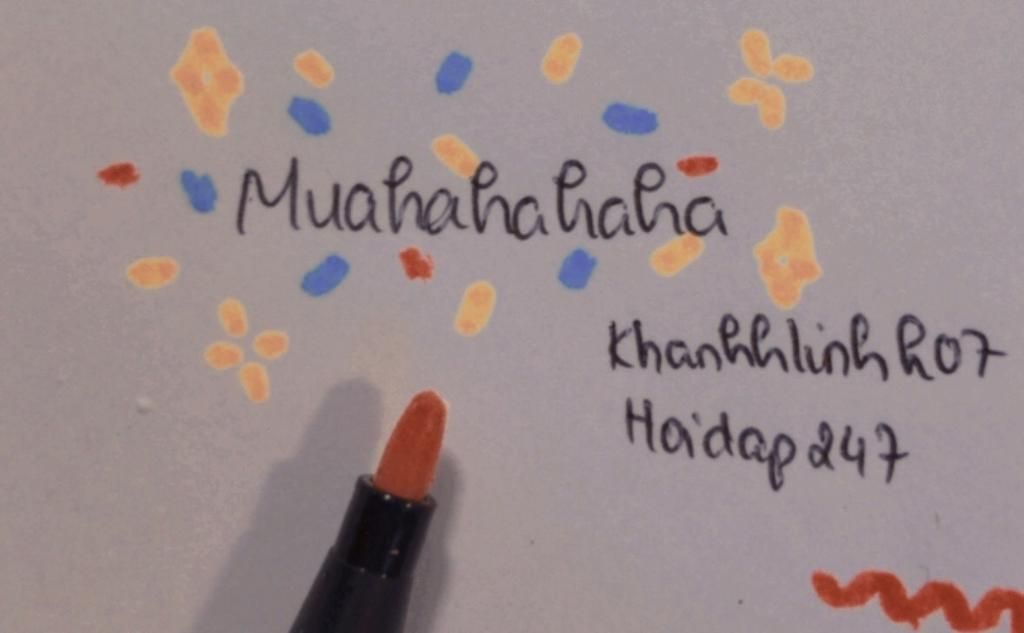 Muahahahaha
Khanhhlinhh07
Hoidap247